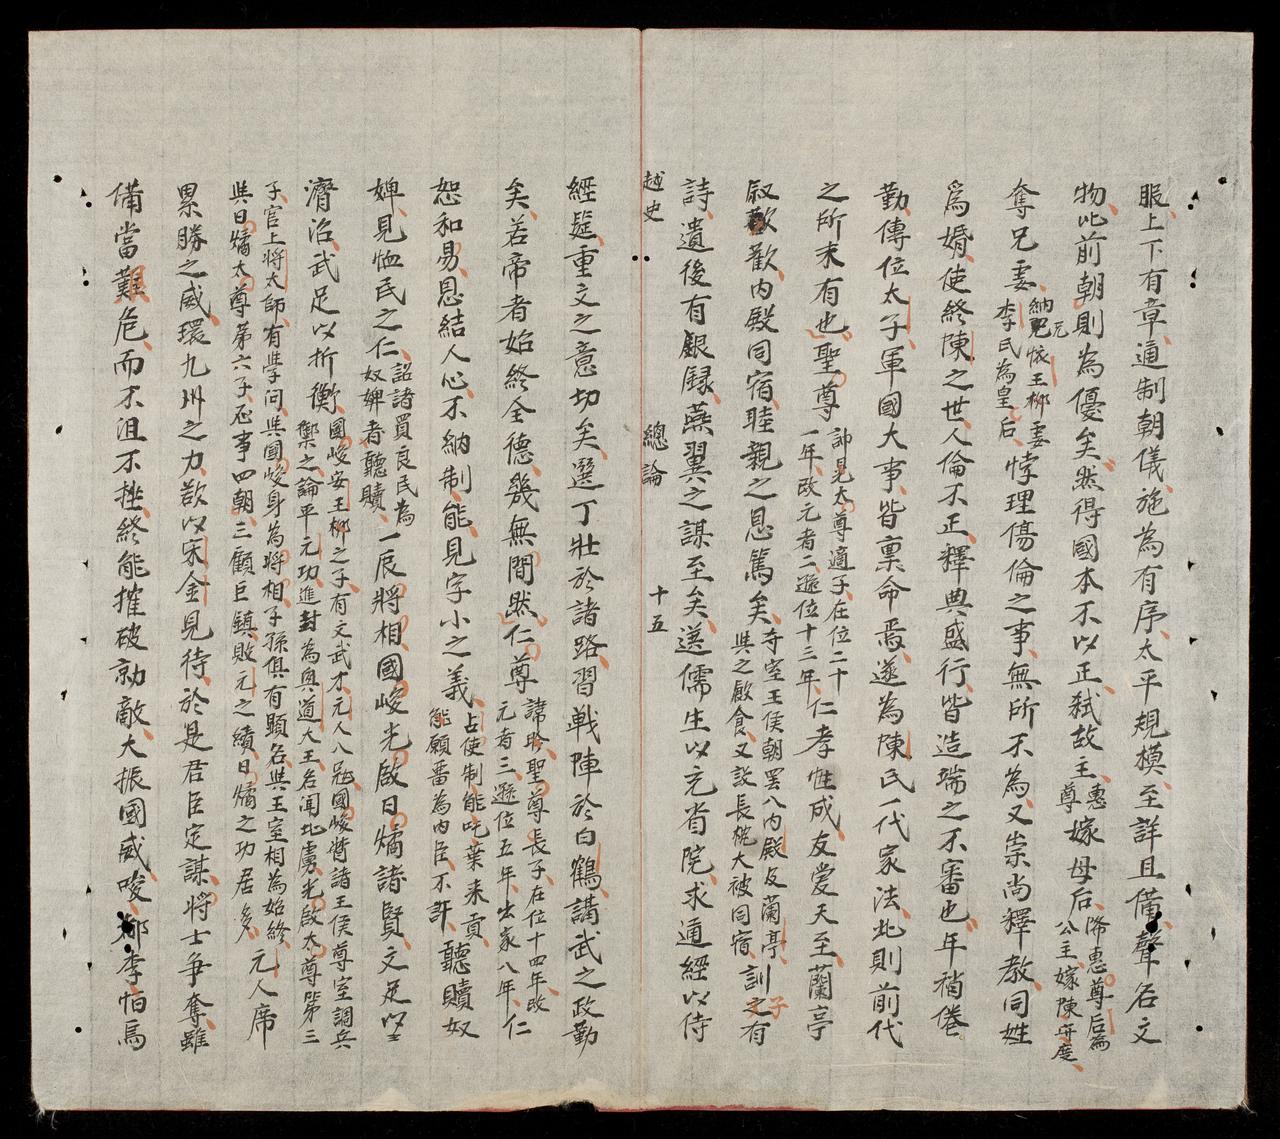 服上下有章通制朝儀施為有序太平規模至詳且備聲名文
物比前朝則為優矣然得國本不以正弒故主惠尊嫁母后降惠尊后為公主嫁陳守度
奪兄妻納兄懷王柳妻李氏為皇后悖理傷倫之事無所不為又崇尚釋教同姓
為婚使終陳之世人倫不正釋典盛行皆造端之不審也年稍倦
勤傳位太子軍國大事皆稟命焉遂為陳氏一代家法此則前代
之所未有也聖尊諱晃太尊適子在位二十一年改元者二遜位十三年仁孝性成友愛天至蘭亭
叙歡內殿同宿睦親之恩篤矣令室王侯朝罷入內殿及蘭亭與之飲食又設長枕大被同宿訓子有
詩遺後有銀録燕翼之謀至矣選儒生以充省院求通經以侍
越史 總論 十五
經筵重文之意切矣選丁壯於諸路習戰陣於白鶴講武之政勤
矣若帝者始終全德幾無間然仁尊諱昑聖尊長子在位十四年改元者三遜位五年出家八年仁
恕和易恩結人心不納制能見字小之義占使制能吒葉来貢能願番為內臣不許聽贖奴
婢見恤民之仁詔諸買良民為奴婢者聽贖一辰將相國峻光啟日燏諸賢文足以
濟治武足以折衝國峻安王柳之子有文武才元人入冦國峻督諸王侯尊室調兵禦之論平元功進封為興道大王名聞北虜光啟太尊第三
子官上將太師有學问與國峻身為將相子孫俱有顯名與王室相為始終
與日燏太尊第六子歷事四朝三顧巨鎮敗元之績日燏之功居多元人席
累勝之威環九州之力欲以宋金見待於是君臣定謀將士爭奪雖
備當難危而不沮不挫終能摧破勍敵大振國威唆都李怕馬